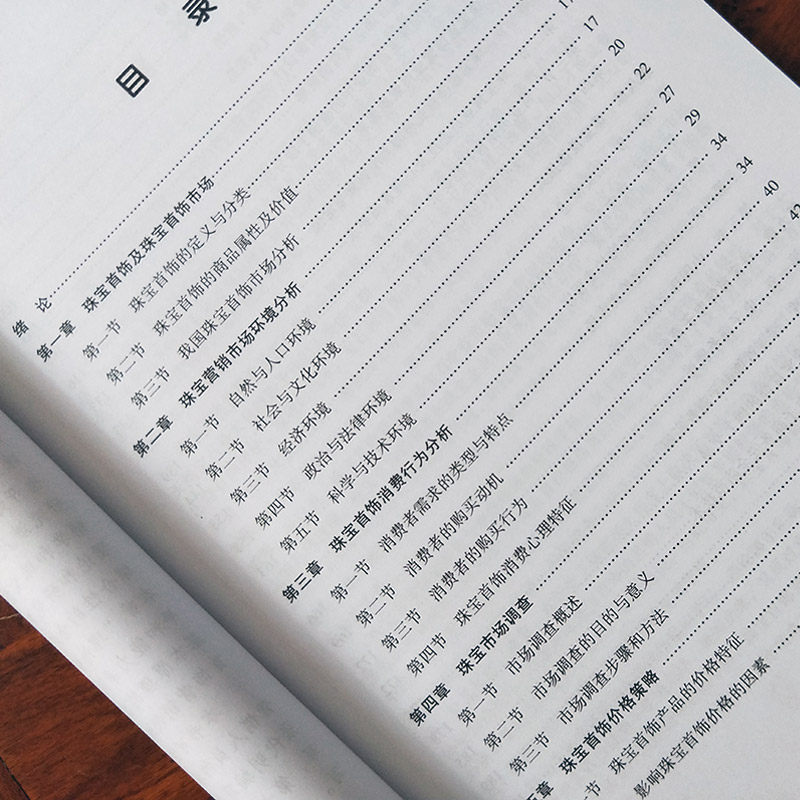 目 录
绪 论
第一章 珠宝首饰及珠宝首饰市场
第一节 珠宝首饰的定义与分类
第二节 珠宝首饰的商品属性及价值
第三节 我国珠宝首饰市场分析
第二章 珠宝营销市场环境分析
第一节 自然与人口环境
第二节 社会与文化环境
第三节 经济环境
第四节 政治与法律环境
第五节 科学与技术环境
第三章 珠宝首饰消费行为分析
第一节 消费者需求的类型与特点
第二节 消费者的购买动机
第三节 消费者的购买行为
第四节 珠宝首饰消费心理特征
第四章 珠宝市场调查
第一节 市场调查概述
第二节 市场调查的目的与意义
第三节 市场调查步骤和方法
章 珠宝首饰价格策略
节 珠宝首饰产品的价格特征
影响珠宝首饰价格的因素
17
20
22
27
29
34
34
40
42